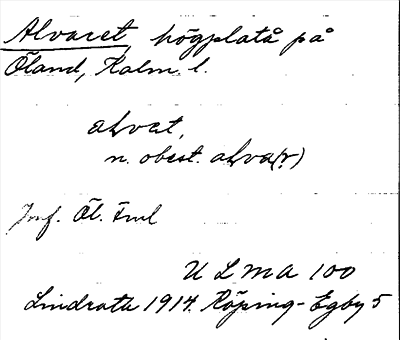 Alvaret, högplatå på
Öland, Kalm. l.
alvat,
n. obest. alva(r)
Jmf. Öl. Fml
U L M A 100
Lindroth 1914. Köping-Egby 5